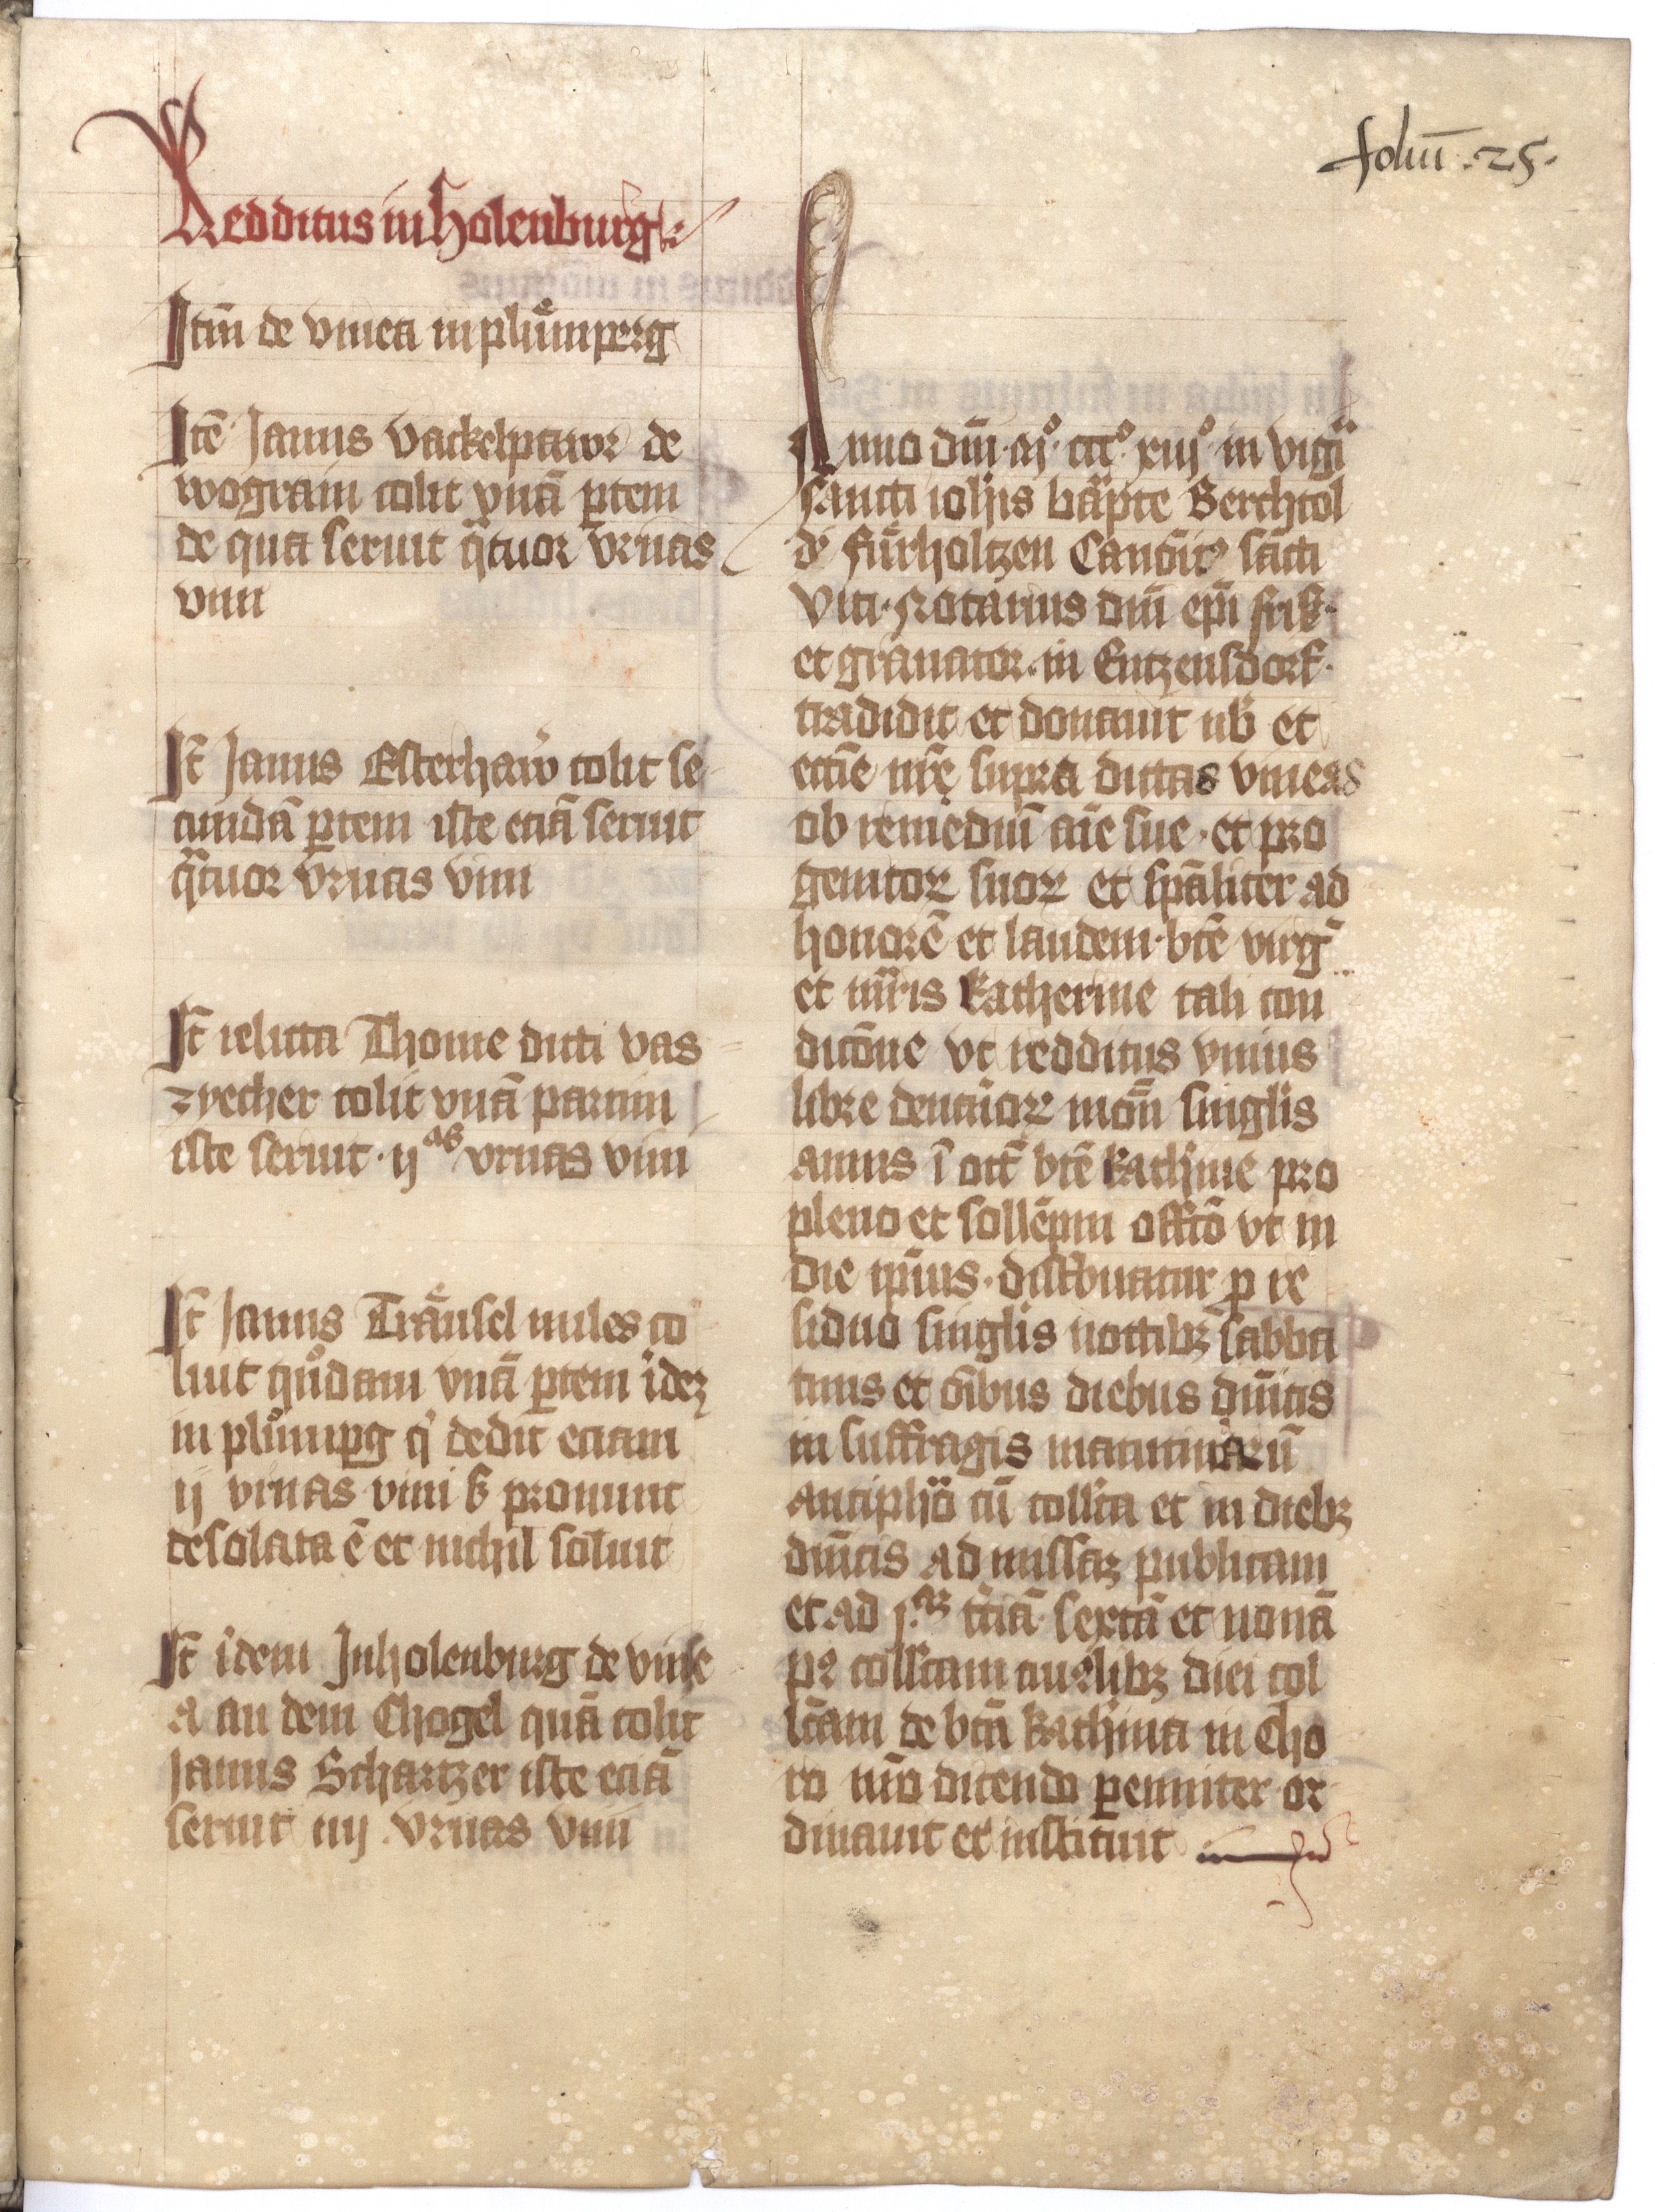 foliū .25.
Redditus in Holenburg
Itm̄ de vinea in pluͤmperg
Itē Jauns Vackelpawr de
wogram colit vnā ꝑtem
de qua seruit qͣtuor vrnas
vini
It̄ Jauns Esterhaw̉ colit se
cundā ꝑtem iste eciā seruit
qͣtuor vrnas vini
It̄ relicta Thome dicti vas
zyecher colit vnā partim
iste seruit · ij ᵃˢ vrnas vini
It̄ Jauns Traͤusel miles co
luit qͦndam vnā ꝑtem ibidez
in pluͤmpg qͥ dedit eciam
ij vrnas vini sꝫ pronunc
desolata ē et nichil soluit
It̄ ibidem Jnholenburg de vine
a an dem Chogel quā colit
Jauns Schartzer iste eciā
seruit iiij . vrnas vini
Anno dn̄i · mͦ · cccͦ · xiijͦ · in vigīa
sancti ioh̄is bāpte Berchtol
dꝰ fuͤrholtzen Canōicꝰ sācti
Viti · Notarius dn̄i ep̄i fris̄ ·
et granator in Entzensdorf ·
tradidit et donauit nob̄ et
ecc̄ie nr̄e supra dictas vineas
ob remediū aīe sue · et pro
genitoꝝ suoꝝ et spāliter ad
honorē et laudem · btē virḡ
et mr̄is katherine tali con
dicōne vt redditus vnius
libre denarioꝝ mon̄ singlis
annis ī oct̄ btē kath̄ine pro
pleno et sollēpni offīco vt in
die ip̄ius · distͥbuatur ꝓ re
siduo singlis noctibꝫ sabba
tinis et oībus diebus dn̄icis
in suffragis matutinarū
antiph̄ō cū collc̄a et in diebꝫ
dn̄icis ad missaꝫ publicam
et ad j.ᵃᵐ t̄ciā sextā et nonā
pꝰ collc̄am cuiꝰlibꝫ diei col
lc̄am de btā kath̄ina in Cho
ro nr̄o dicendo ꝑenniter or
dinauit et instituit